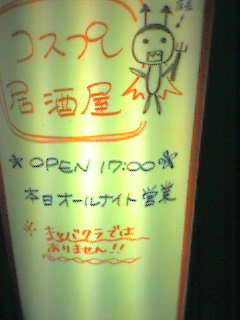 コスプレ
居酒屋
※OPEN 17:00※
本日オールナイト営業
※キャバクラでは
ありません!!